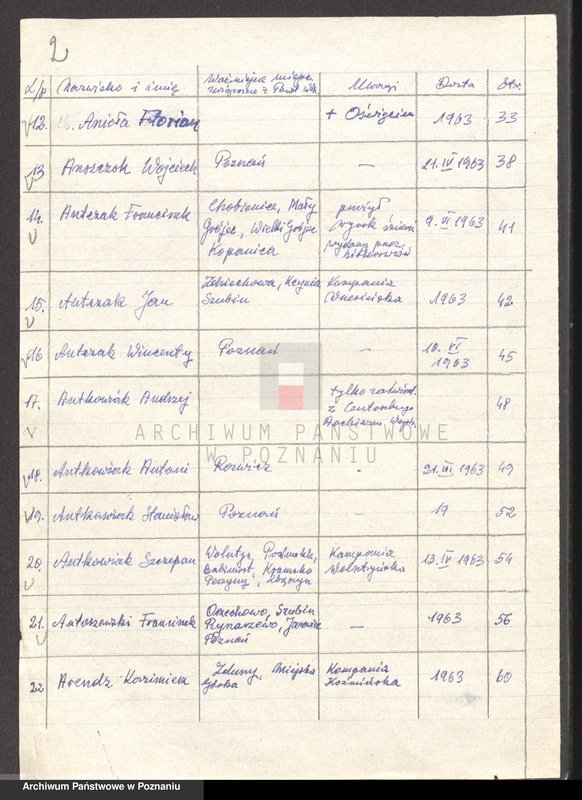 2
L/p Nazwisko i imię Ważniejsze miejsca Uwagi Data Str.
związane z Powst. Wlk.
12. Anioła Florian + Oświęcim 1963 33
13 Anszczok Wojciech Poznań — 21.IV 1963 38
14. Antczak Franciszek Chobienice, Mały przeżył 9. VI 1963 41
Grójec, Wielki Grójec wyrok śmierci
Kopanica wydany przez
hitlerowców
15. Antczak Jan Zdziechowa, Kcynia Kompania 1963 42
Szubin Gnieźnińska
16 Antczak Wincenty Poznań — 10. VI 45
1963
17. Antkowiak Andrzej tylko zaświad. 48
z Centralnego
Archiwum Wojsk.
ARCHIWUM PAŃSTWOWE
W POZNANIU
18. Antkowiak Antoni Rawicz - 21. III 1963 49
19. Antkowiak Stanisław Poznań — 19 52
20. Antkowiak Szczepan Wolsztyn, Kompania 13. IV 1963 54
Babimost, Kramsko Wolsztyńska
Zbąszyń
21. Antoszewski Franciszek Orzechowo, Szubin — 1963 56
Rynarzewo, Janowiec
Poznań
22 Arendz Kazimierz Zduny, Miejska Kompania 1963 60
Górka Koźmińska
Archiwum Państwowe w Poznaniu